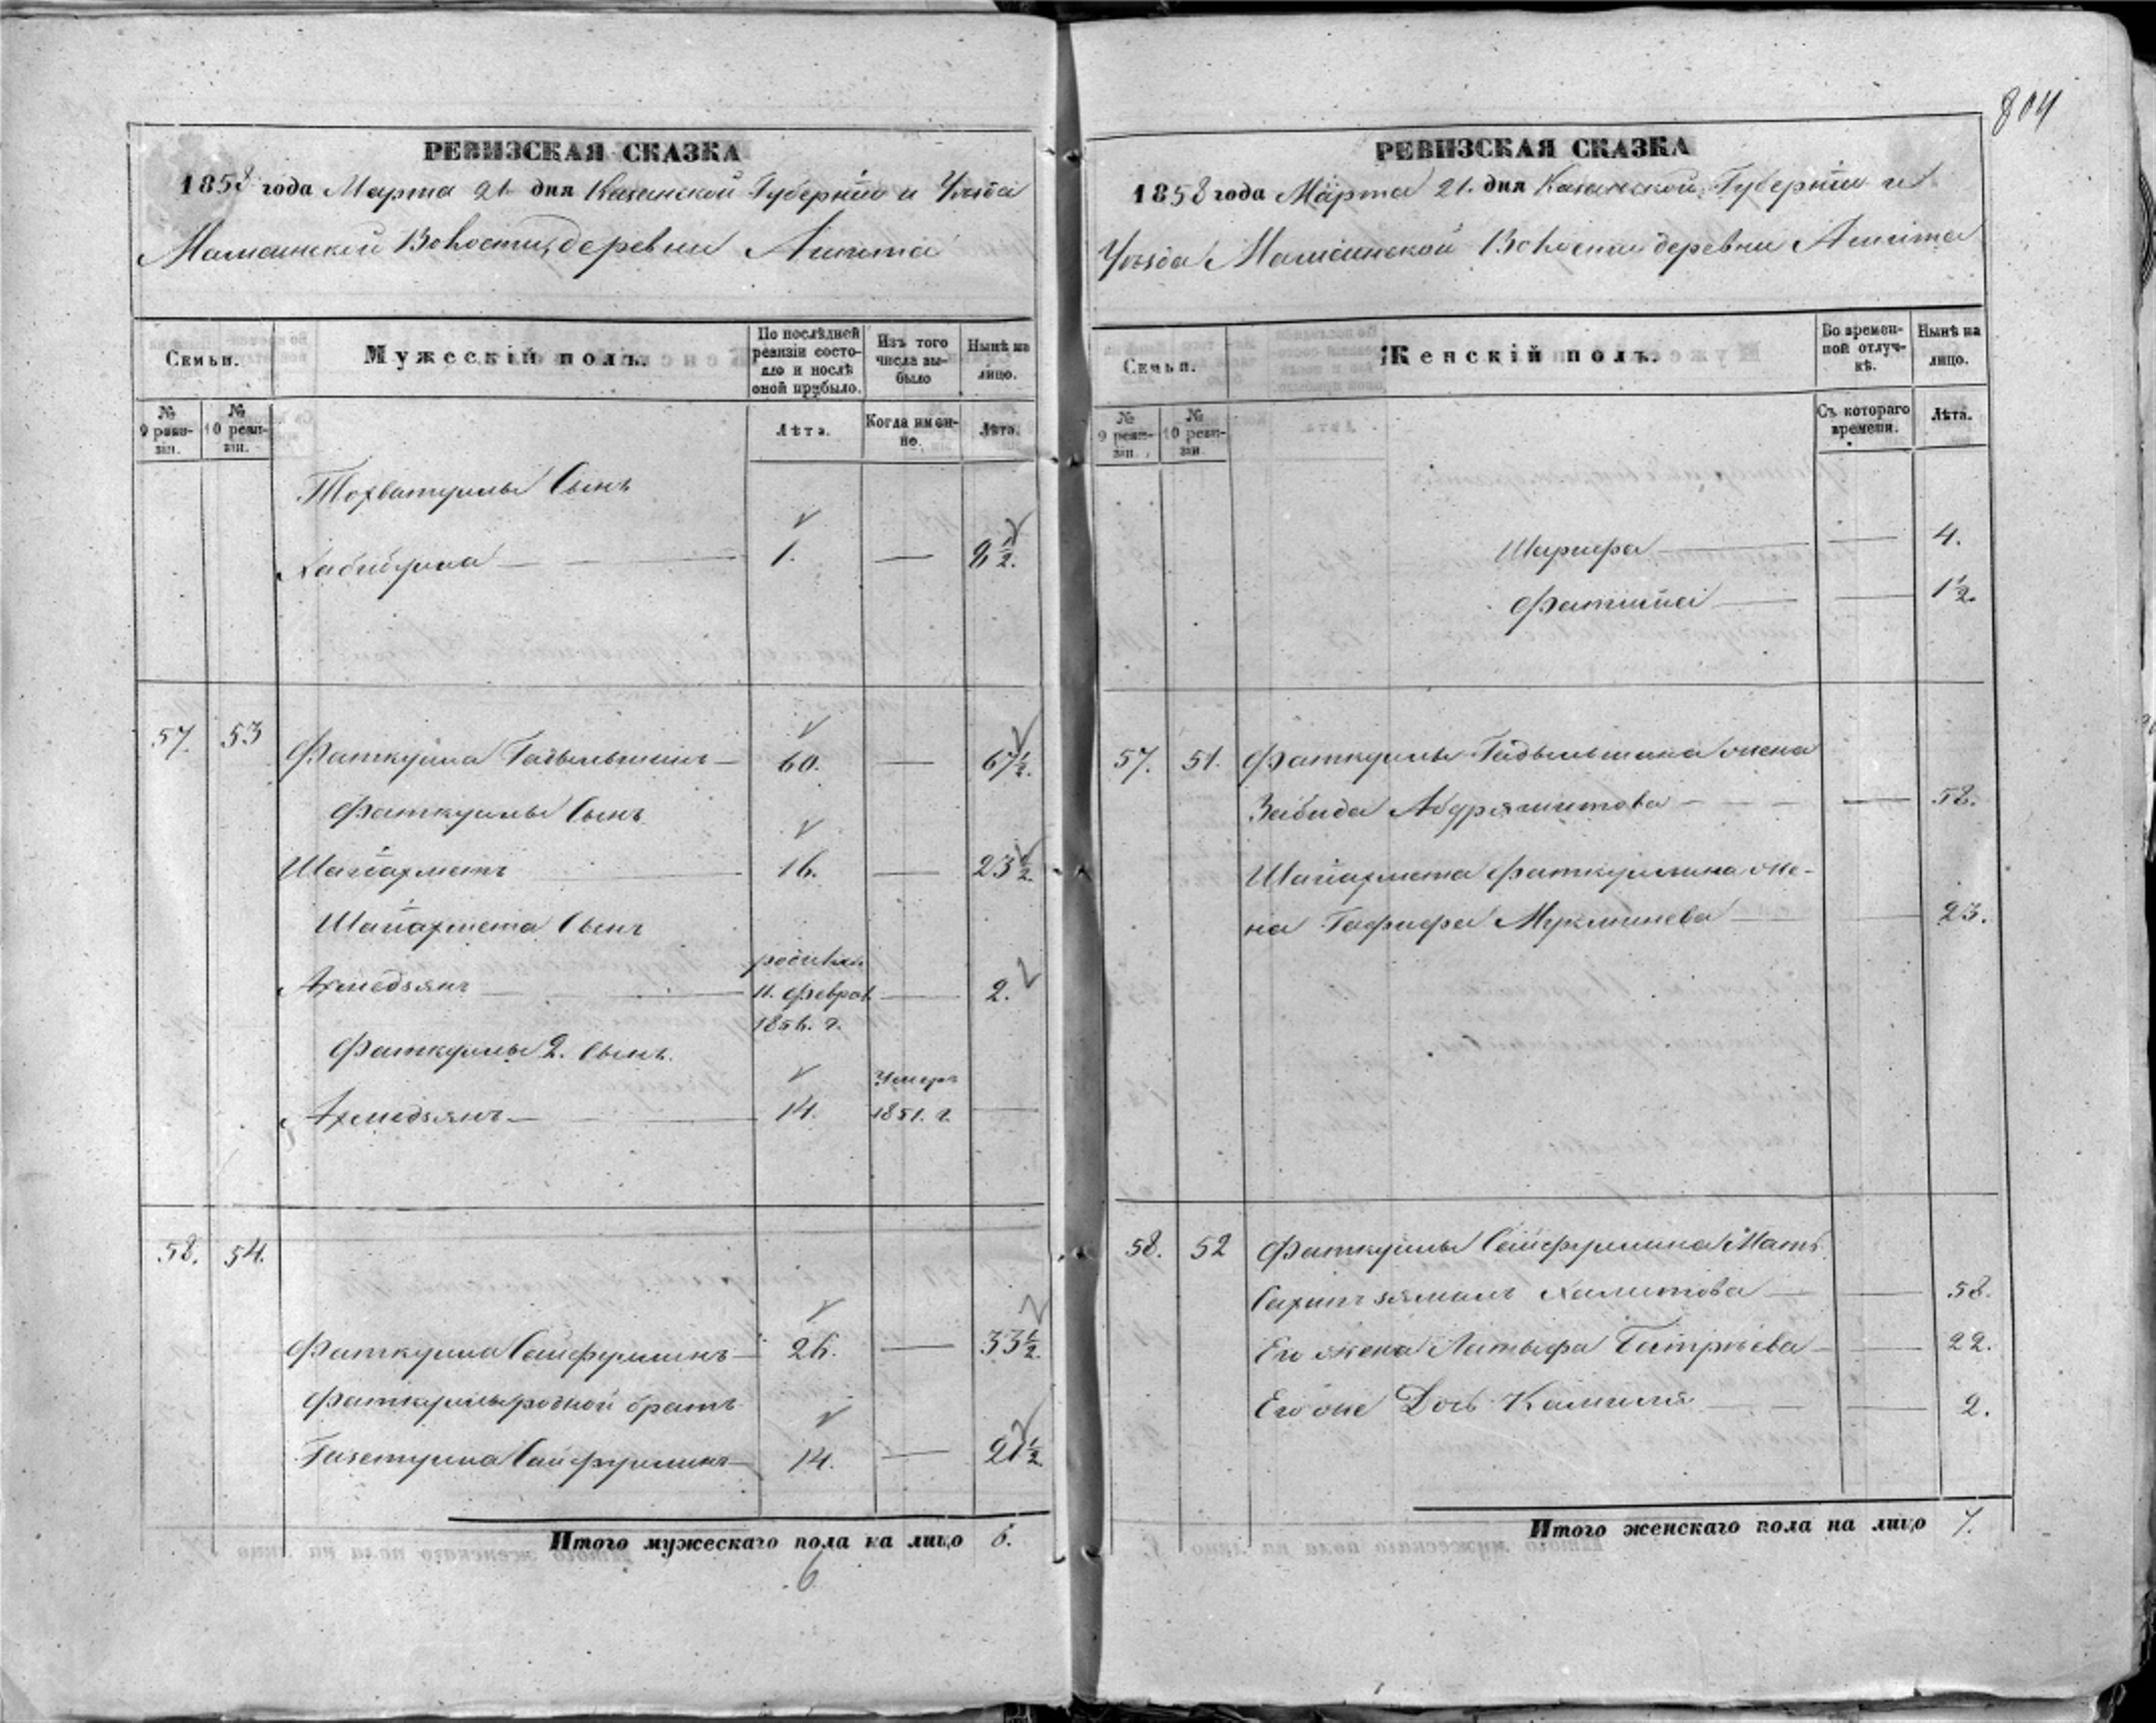 804
РЕВИЗСКАЯ СКАЗКА
1858 года Марта 21 дня Казанской Губерніи и Уѣзда
Волости, деревни Ашита
Семьи.
Мужескій полъ.
По послѣдней ревизіи состояло и послѣ оной прибыло.
Изъ того числа выбыло
Нынѣ на лицо.
№ 9 ревизіи.
№ 10 ревизіи.
Лѣта.
Когда именно.
Лѣта.
Тохватуллы Сынъ
Хабибулла 1. — 8 1/2.
57. 53 Фаткулла Гадыльшинъ 60. — 67 1/2.
Фаткуллы Сынъ
Шагіахметъ 16. — 23 1/2.
Шагіахмета Сынъ
Ахмедзянъ родился 11. Феврал. 1856. г. — 2.
Фаткуллы 2. Сынъ.
Ахмедзянъ 14. Умеръ 1851. г. —
58. 54.
Фаткулла Сайфуллинъ 26. — 33 1/2.
Фаткуллы родной братъ
Гизетулла Сайфуллинъ 14. — 21 1/2
Итого мужескаго пола на лицо 6.
6
РЕВИЗСКАЯ СКАЗКА
1858 года Марта 21. дня Казанской Губерніи и
Уѣзда Волости деревни Ашита
Семьи.
Женскій полъ.
Во временной отлучкѣ.
Нынѣ на лицо.
№ 9 ревизіи.
№ 10 ревизіи.
Съ котораго времени.
Лѣта.
Шарифа — 4.
Фатима — 1 1/2.
57. 51. Фаткуллы Гадыльшина жена
Забида Абдряшитова — 58.
Шагіахмета Фаткуллина же-
на Гафифа Мукминева 23.
58. 52 Фаткуллы Сайфуллина Мать
Сахипзямалъ Халитова — 58.
Его жена Латыфа — 22.
Его же Дочь Камиля — 2.
Итого женскаго пола на лицо 7.